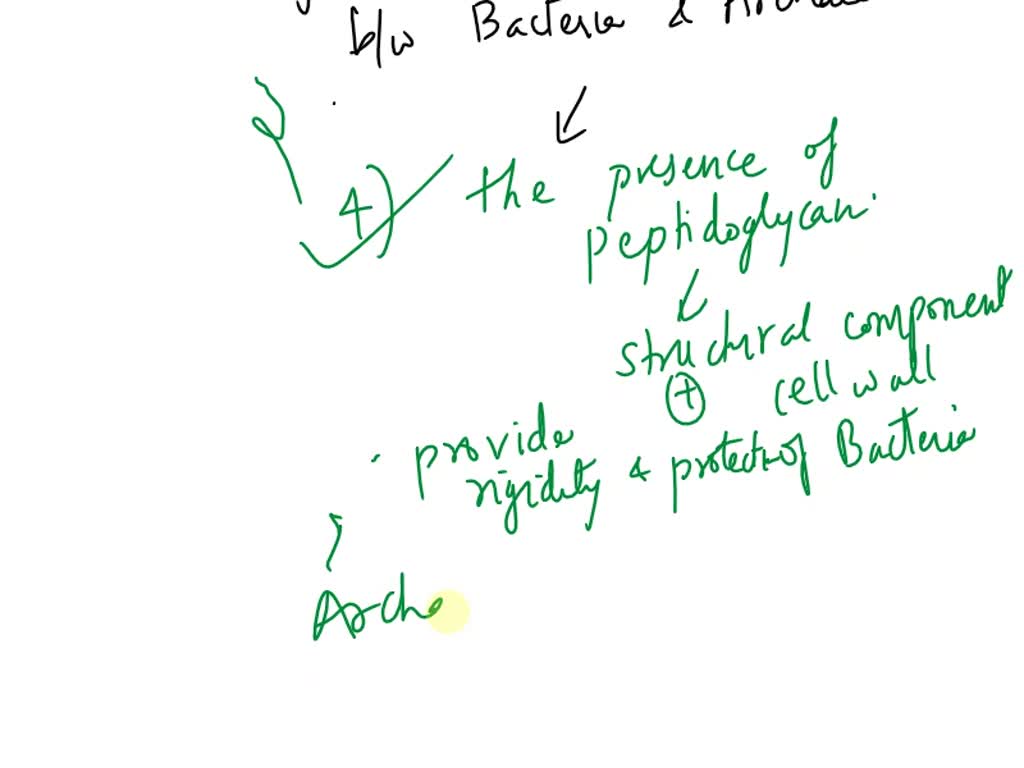 b/w Bacteria &
4) the presence of
peptidoglycan.
structural component
+ cell wall
provide
rigidity & protect of Bacteria
Arche